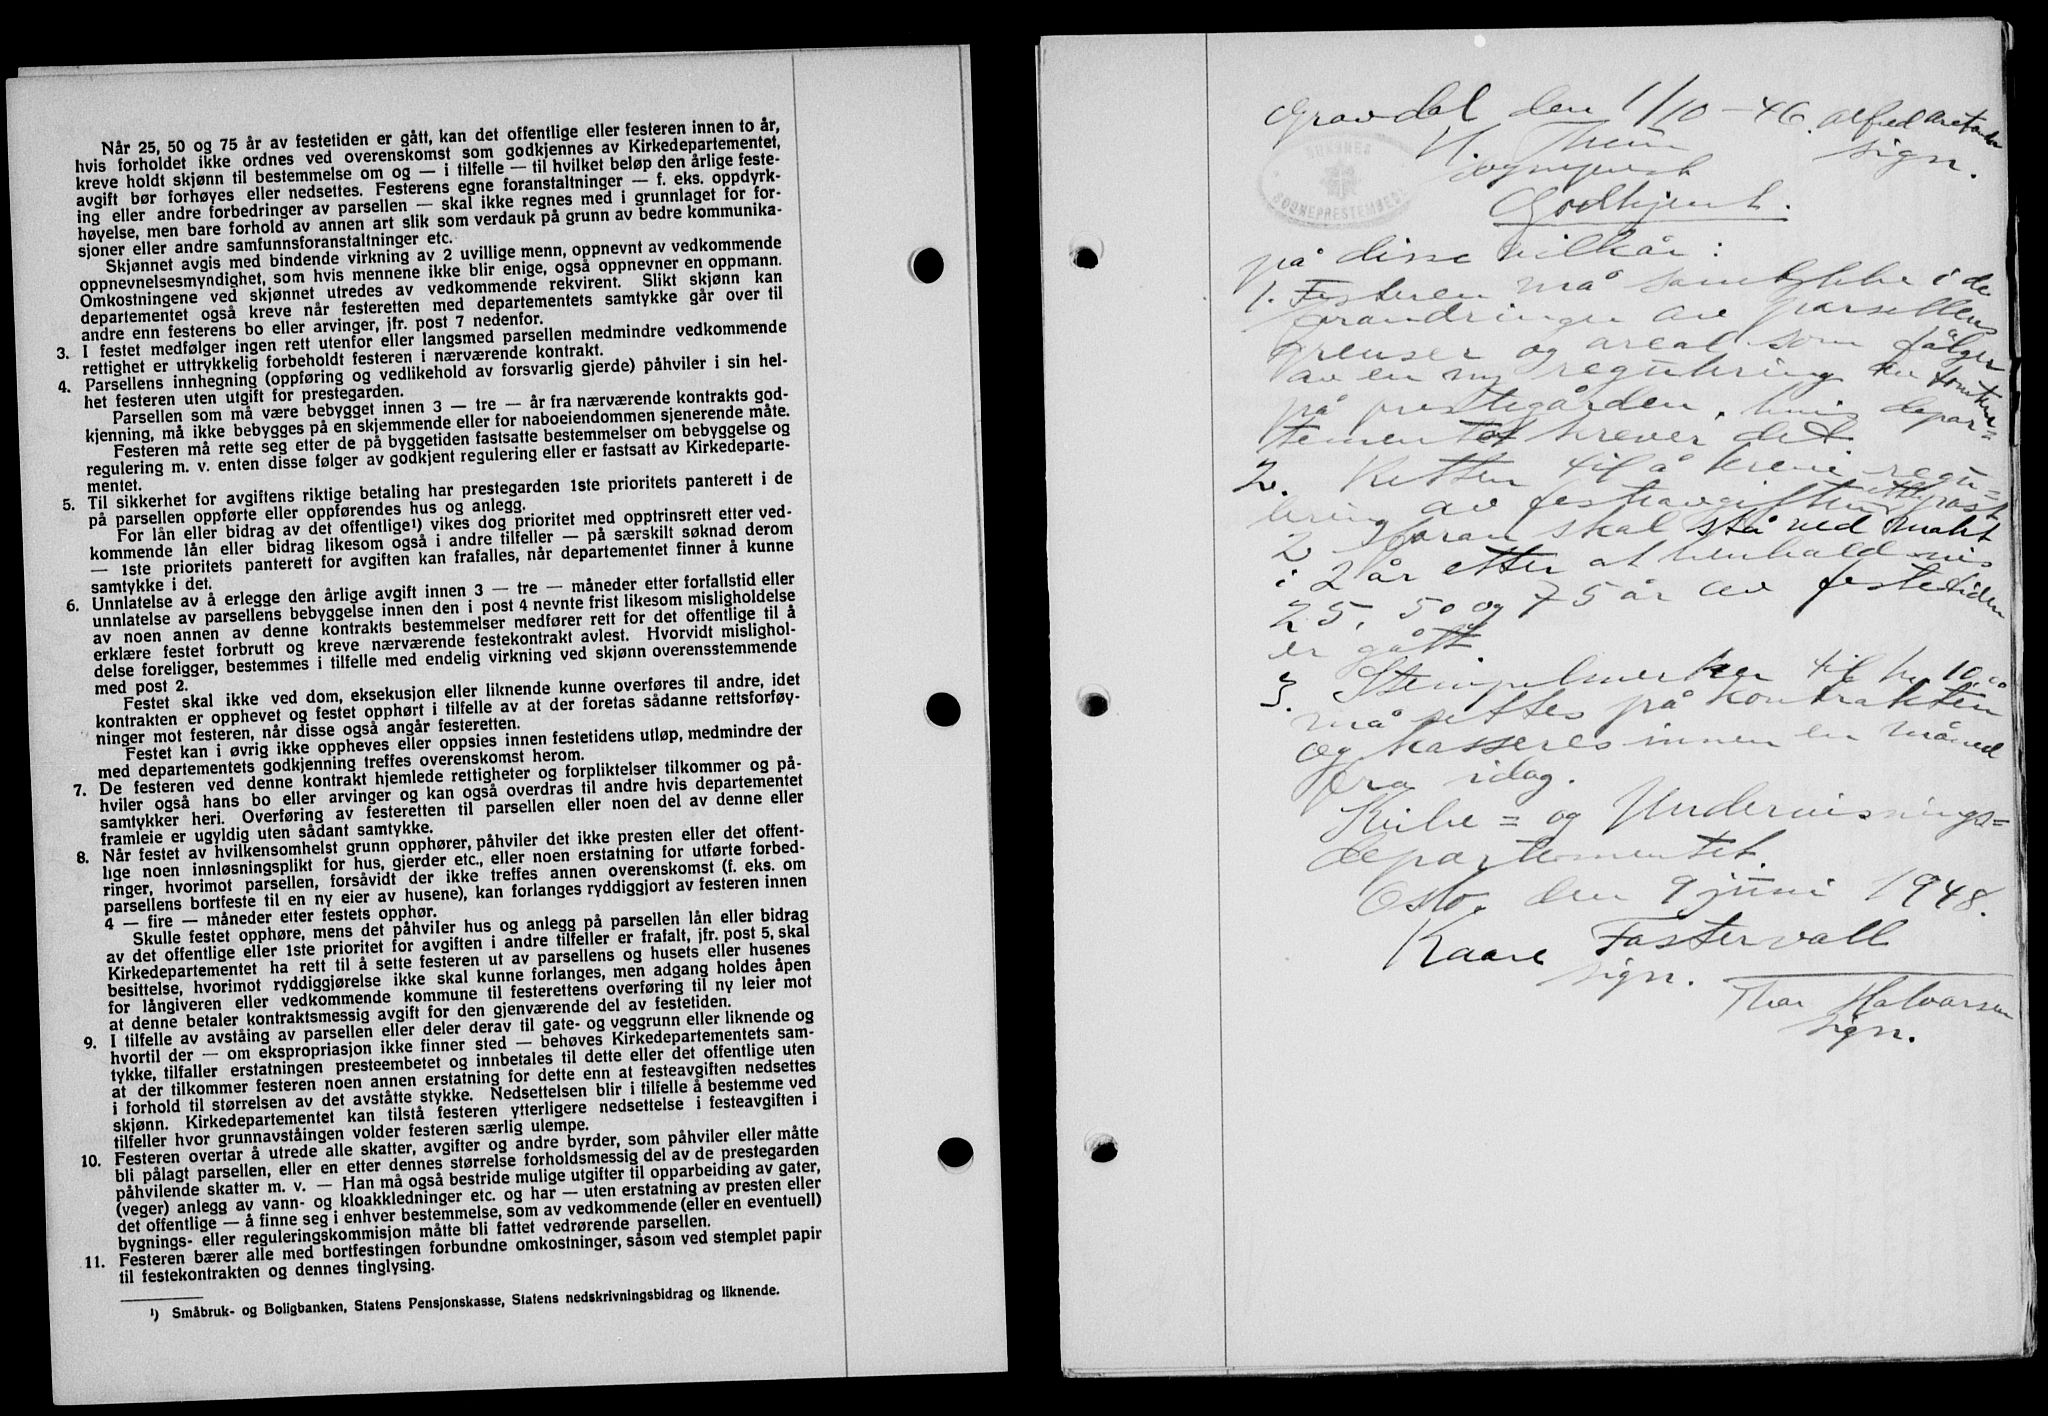 Når 25, 50 og 75 år av festetiden er gått, kan det offentlige eller festeren innen to år,
hvis forholdet ikke ordnes ved overenskomst som godkjennes av Kirkedepartementet,
kreve holdt skjønn til bestemmelse om og — i tilfelle — til hvilket beløp den årlige feste-
avgift bør forhøyes eller nedsettes. Festerens egne foranstaltninger — f. eks. oppdyrk-
ing eller andre forbedringer av parsellen — skal ikke regnes med i grunnlaget for for-
høyelse, men bare forhold av annen art slik som verdauk på grunn av bedre kommunika-
sjoner eller andre samfunnsforanstaltninger etc.
Skjønnet avgis med bindende virkning av 2 uvillige menn, oppnevnt av vedkommende
oppnevnelsesmyndighet, som hvis mennene ikke blir enige, også oppnevner en oppmann.
Omkostningene ved skjønnet utredes av vedkommende rekvirent. Slikt skjønn kan
departementet også kreve når festeretten med departementets samtykke går over til
andre enn festerens bo eller arvinger, jfr. post 7 nedenfor.
3. I festet medfølger ingen rett utenfor eller langsmed parsellen medmindre vedkommende
rettighet er uttrykkelig forbeholdt festeren i nærværende kontrakt.
4. Parsellens innhegning (oppføring og vedlikehold av forsvarlig gjerde) påhviler i sin hel-
het festeren uten utgift for prestegarden.
Parsellen som må være bebygget innen 3 — tre — år fra nærværende kontrakts god-
kjenning, må ikke bebygges på en skjemmende eller for naboeiendommen sjenerende måte.
Festeren må rette seg etter de på byggetiden fastsatte bestemmelser om bebyggelse og
regulering m. v. enten disse følger av godkjent regulering eller er fastsatt av Kirkedeparte-
mentet.
5. Til sikkerhet for avgiftens riktige betaling har prestegarden 1ste prioritets panterett i de
på parsellen oppførte eller oppførendes hus og anlegg.
For lån eller bidrag av det offentlige¹) vikes dog prioritet med opptrinsrett etter ved-
kommende lån eller bidrag likesom også i andre tilfeller — på særskilt søknad derom
— 1ste prioritets panterett for avgiften kan frafalles, når departementet finner å kunne
samtykke i det.
6. Unnlatelse av å erlegge den årlige avgift innen 3 — tre — måneder etter forfallstid eller
unnlatelse av parsellens bebyggelse innen den i post 4 nevnte frist likesom misligholdelse
av noen annen av denne kontrakts bestemmelser medfører rett for det offentlige til å
erklære festet forbrutt og kreve nærværende festekontrakt avlest. Hvorvidt misligho-
delse foreligger, bestemmes i tilfelle med endelig virkning ved skjønn overensstemmende
med post 2.
Festet skal ikke ved dom, eksekusjon eller liknende kunne overføres til andre, idet
kontrakten er opphevet og festet opphørt i tilfelle av at der foretas sådanne rettsforføy-
ninger mot festeren, når disse også angår festeretten.
Festet kan i øvrig ikke oppheves eller oppsies innen festetidens utløp, medmindre der
med departementets godkjenning treffes overenskomst herom.
7. De festeren ved denne kontrakt hjemlede rettigheter og forpliktelser tilkommer og på-
hviler også hans bo eller arvinger og kan også overdras til andre hvis departementet
samtykker heri. Overføring av festeretten til parsellen eller noen del av denne eller
framleie er ugyldig uten sådant samtykke.
8. Når festet av hvilkensomhelst grunn opphører, påhviler det ikke presten eller det offent-
lige noen innløsningsplikt for hus, gjerder etc., eller noen erstatning for utførte forbed-
ringer, hvorimot parsellen, forsåvidt der ikke treffes annen overenskomst (f. eks. om
parsellens bortfeste til en ny eier av husene), kan forlanges ryddiggjort av festeren innen
4 — fire — måneder etter festets opphør.
Skulle festet opphøre, mens det påhviler hus og anlegg på parsellen lån eller bidrag
av det offentlige eller 1ste prioritet for avgiften i andre tilfeller er frafalt, jfr. post 5, skal
Kirkedepartementet ha rett til å sette festeren ut av parsellens og husets eller husenes
besittelse, hvorimot ryddiggjørelse ikke skal kunne forlanges, men adgang holdes åpen
for långiveren eller vedkommende kommune til festerettens overføring til ny leier mot
at denne betaler kontraktsmessig avgift for den gjenværende del av festetiden.
9. I tilfelle av avståing av parsellen eller deler derav til gate- og veggrunn eller liknende og
hvortil der — om ekspropriasjon ikke finner sted — behøves Kirkedepartementets sam-
tykke, tilfaller erstatningen presteembetet og innbetales til dette eller det offentlige uten
at der tilkommer festeren noen annen erstatning for dette enn at festeavgiften nedsettes
i forhold til størrelsen av det avståtte stykke. Nedsettelsen blir i tilfelle å bestemme ved
skjønn. Kirkedepartementet kan tilstå festeren ytterligere nedsettelse i festeavgiften i
tilfeller hvor grunnavståingen volder festeren særlig ulempe.
10. Festeren overtar å utrede alle skatter, avgifter og andre byrder, som påhviler eller måtte
bli pålagt parsellen, eller en etter dennes størrelse forholdsmessig del av de prestegarden
påhvilende skatter m. v. — Han må også bestride mulige utgifter til opparbeiding av gater,
(veger) anlegg av vann- og kloakkledninger etc. og har — uten erstatning av presten eller
det offentlige — å finne seg i enhver bestemmelse, som av vedkommende (eller en eventuell)
bygnings- eller reguleringskommisjon måtte bli fattet vedrørende parsellen.
11. Festeren bærer alle med bortfestingen forbundne omkostninger, såsom ved stemplet papir
til festekontrakten og dennes tinglysing.
¹) Småbruk- og Boligbanken, Statens Pensjonskasse, Statens nedskrivningsbidrag og liknende.
Gravdal den 1/10 - 46. Alfred
sign.
sogneprest
SOGNEPRESTEMBED
Godkjent.
på disse vilkår:
1. Festeren må samtykke i de
forandringer av parsellens
grenser og areal som følger
av en ny regulering av tomtene
på prestegården, hvis depar=
tementet krever det
2. Retten til å kreve regu=
lering av festeavgiften etter post
2 foran skal stå ved makt
i 2 år etter at henholdsvis
25, 50 og 75 år av festetiden
er gått
3. Stempelmerker til kr 10,00
må settes på kontrakten
og kasseres innen en måned
fra idag.
Kirke= og Undervisnings=
departementet.
Oslo, den 9 juni 1948.
Kaare Fostervoll
sign.
Thor Halvorsen
sign.